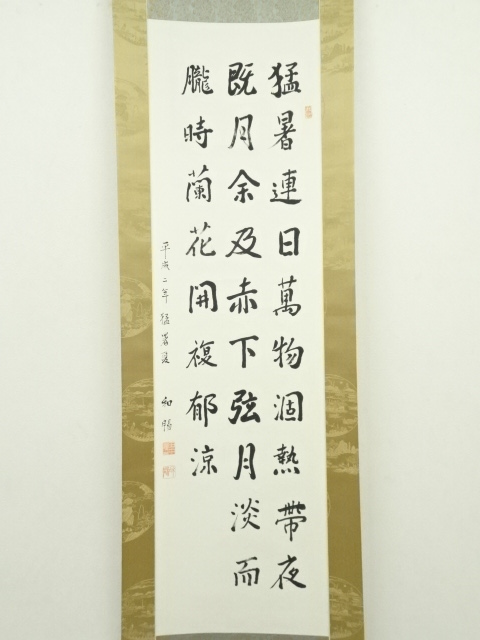 猛暑連日萬物涸熱帶夜
既月余及赤下弦月淡而
朧時蘭花開複郁涼
平成二年猛暑